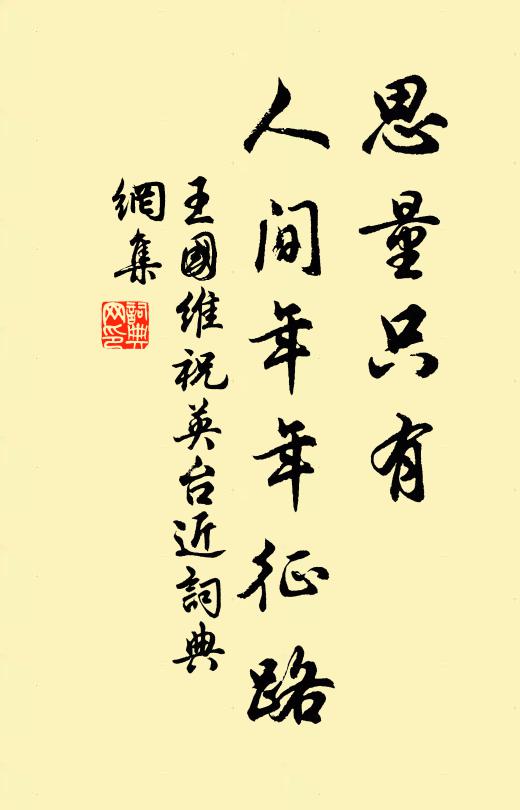 思量只有
人间年年征路
王國维祝英台近詞典
網集
詞典网印